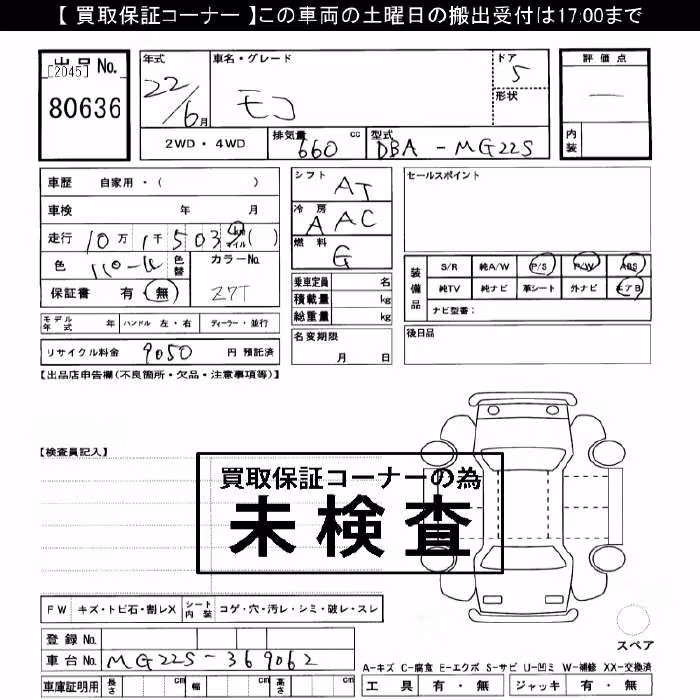 【 買取保証コーナー 】この車両の土曜日の搬出受付は17:00まで
出品 No.
[2045]
80636
年式
22/6月
車名・グレード
モコ
ドア
5
形状
評価点
―
内装
2WD・4WD
排気量
660 cc
型式
DBA-MG22S
車歴 自家用・( )
車検 年 月
走行 10万1千503 km マイル ( )
色
色替
カラーNo.
Z7T
保証書 有・無
シフト AT
冷房 AAC
燃料 G
乗車定員 名
積載量 kg
総重量 kg
セールスポイント
装備品
S/R 純A/W P/S P/W ABS
純TV 純ナビ 革シート 外ナビ エアB
ナビ型番:
モデル年式 年 ハンドル 左・右 ディーラー・並行
リサイクル料金 9050 円 預託済
名変期限
月 日
後日品
【出品店申告欄(不良箇所・欠品・注意事項等)】
【検査員記入】
買取保証コーナーの為
未検査
FW キズ・トビ石・割レX シート内装 コゲ・穴・汚レ・シミ・破レ・スレ
登録 No.
車台 No. MG22S-369062
車庫証明用 長さ cm 幅 cm 高さ cm
スペア
A-キズ C-腐食 E-エクボ S-サビ U-凹ミ W-補修 XX-交換済
工具 有・無 ジャッキ 有・無